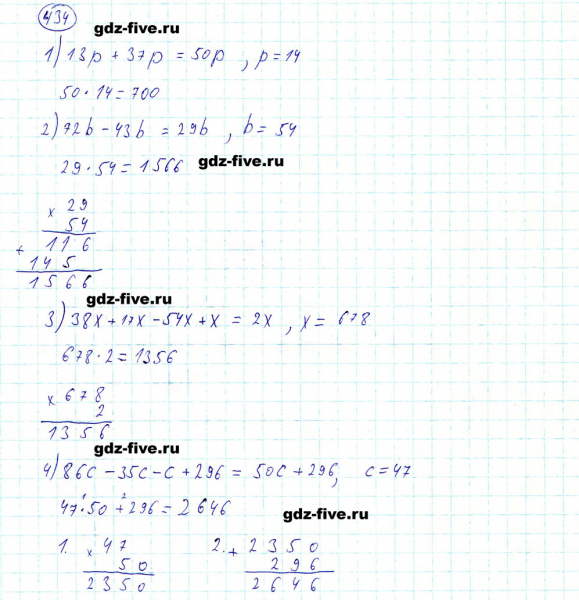 434
gdz-five.ru
1) 13p + 37p = 50p , p = 14
50 · 14 = 700
2) 72b - 43b = 29b , b = 54
29 · 54 = 1566
gdz-five.ru
× 29
54
+ 116
145
1566
gdz-five.ru
3) 38x + 17x - 54x + x = 2x , x = 678
678 · 2 = 1356
× 678
2
1356
gdz-five.ru
4) 86c - 35c - c + 296 = 50c + 296, c = 47
1 2
47 · 50 + 296 = 2646
gdz-five.ru
1. × 47
50
2350
2. + 2350
296
2646